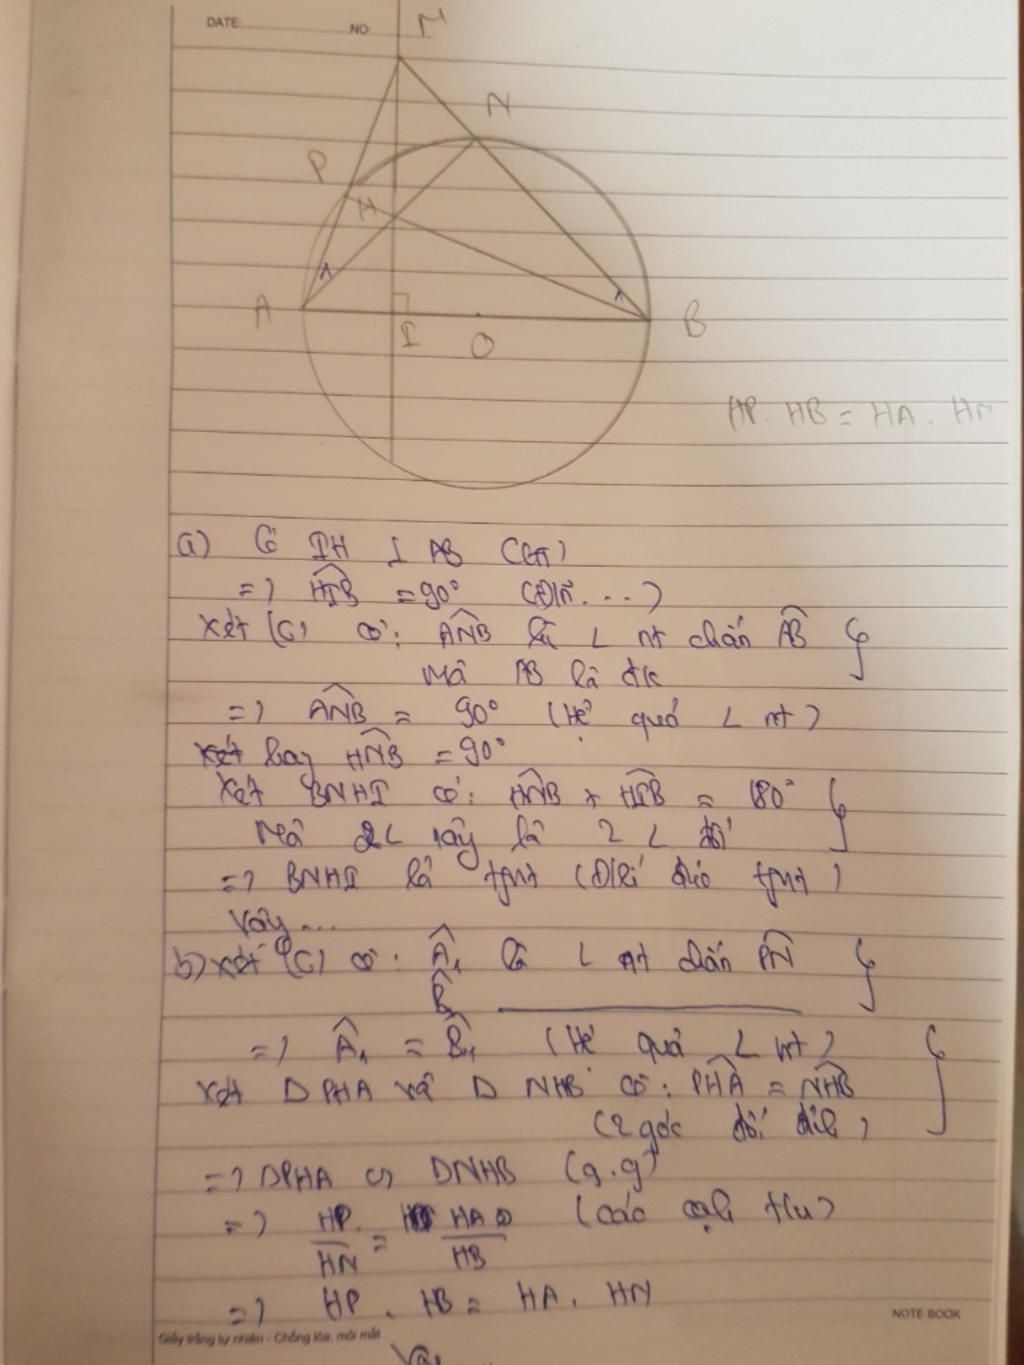 DATE
NO
M
N
P
H
1
1
A
I
O
B
HP. HB = HA. HN
a) Có IH ⊥ AB (GT)
=> HIB = 90° (Đ/n....)
Xét (C) có: ANB là ∠ nt chắn AB
Mà AB là đk
=> ANB = 90° (Hệ quả ∠ nt)
hay HNB = 90°
Xét BNHI có: HNB + HIB = 180°
Mà 2∠ này là 2 ∠ đối
=> BNHI là tgnt (Đ/lí đảo tgnt)
Vậy...
b) Xét (C) có: A1 là ∠ nt chắn PN
B1
=> A1 = B1 (Hệ quả ∠ nt)
Xét Δ PHA và Δ NHB có: PHA = NHB
(2 góc đối đỉnh)
=> ΔPHA ∽ ΔNHB (g.g)
=> HP/HN = HA/HB (các cạnh t/ư)
=> HP . HB = HA. HN
NOTE BOOK
Giấy trắng tự nhiên - Chống lóa, mỏi mắt
Vậy